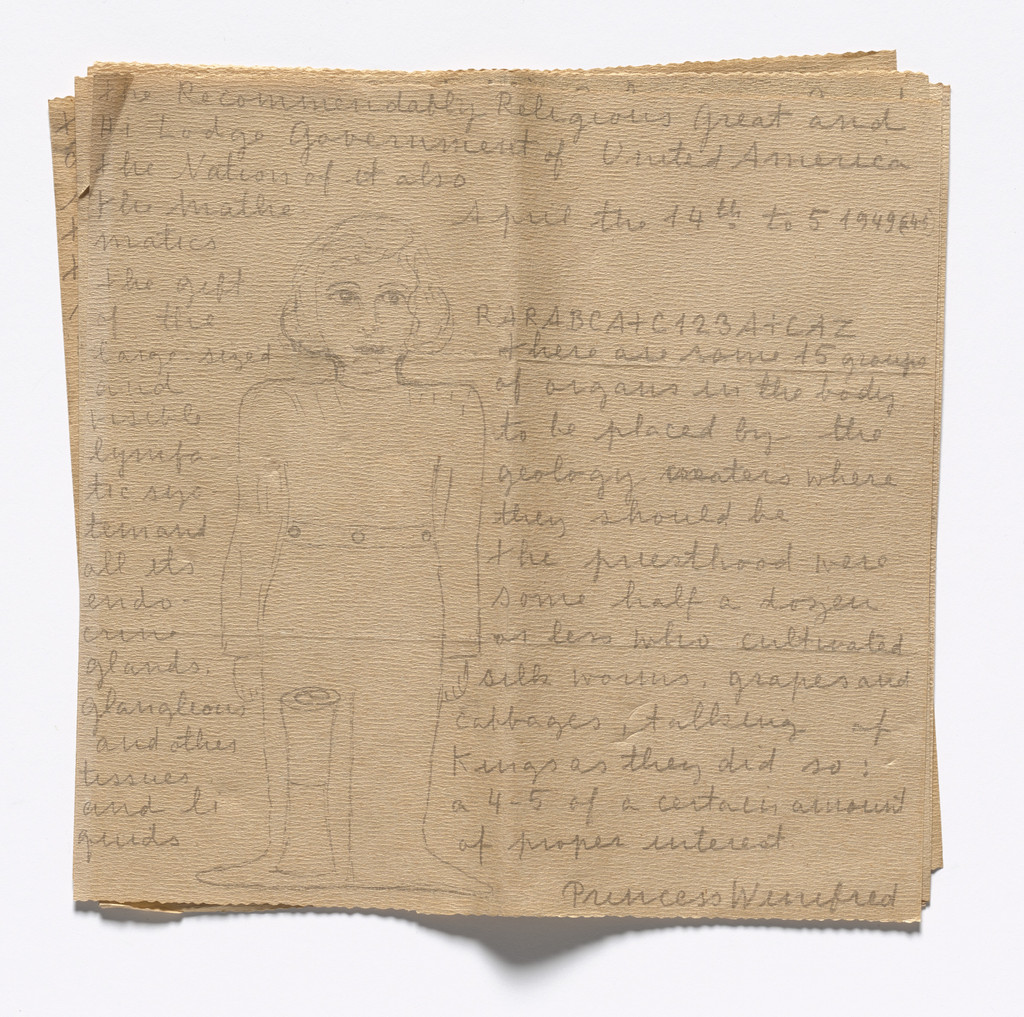 the Recommendably Religious Great and
Hi Lodge Government of United America
the Nation of it also
the Mathe
matics
the geft
of the
large-sized
and
visible
lymfa-
tic sys-
tem and
all its
endo-
crine
glands.
glanglious
and other
tissues
and li
quids
April the 14th to 5 1949
RARABCA+C123A+CAZ
there are some 15 groups
of organs in the body
to be placed by the
geology waters where
they should be
the priesthood were
some half a dozen
or less who cultivated
silk worms, grapes and
cabbages, talking of
Kings as they did so:
a 4-5 of a certain amount
of proper interest
Princess Winifred